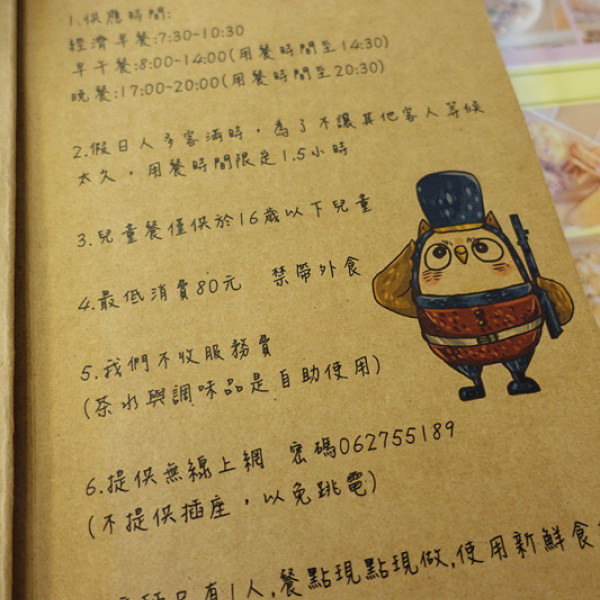 1.供應時間:
經濟早餐:7:30~10:30
早午餐:8:00~14:00(用餐時間至14:30)
晚餐:17:00~20:00(用餐時間至20:30)
2.假日人多客滿時，為了不讓其他客人等候
太久，用餐時間限定1.5小時
3.兒童餐僅供於16歲以下兒童
4.最低消費80元 禁帶外食
5.我們不收服務費
(茶水與調味品是自助使用)
6.提供無線上網 密碼062755189
(不提供插座，以免跳電)
只有1人,餐點現點現做,使用新鮮食